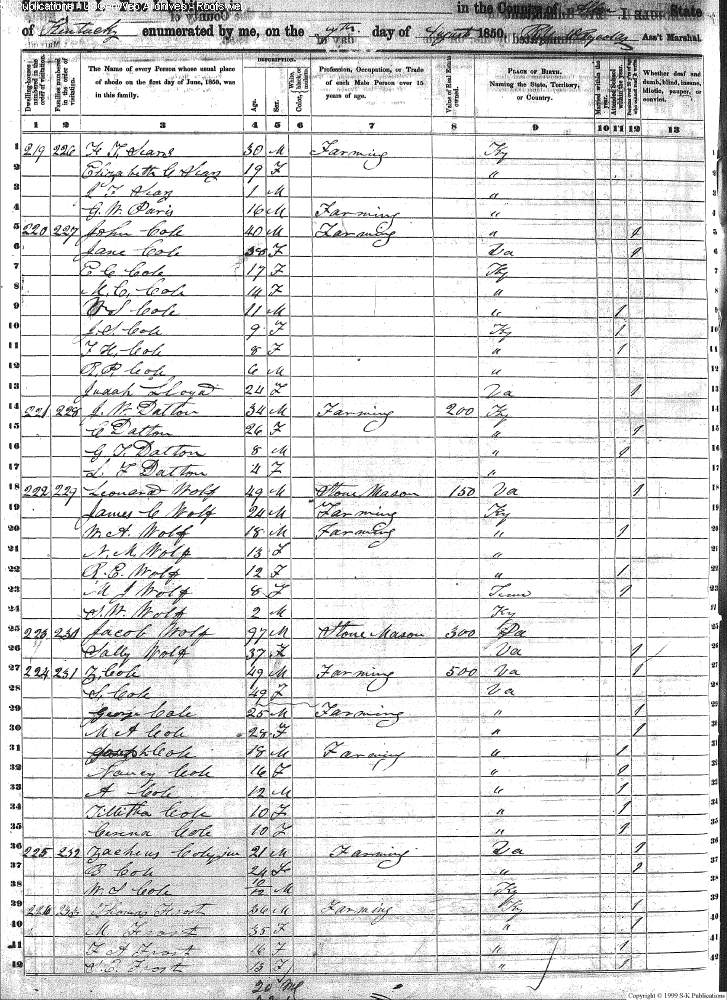 in the County of Allen State
of Kentucky enumerated by me, on the 9th day of August 1850. Ass't Marshal.
Dwelling-houses numbered in the order of visitation.
Families numbered in the order of visitation.
The Name of every Person whose usual place of abode on the first day of June, 1850, was in this family.
DESCRIPTION.
Age.
Sex.
Profession, Occupation, or Trade of each Male Person over 15 years of age.
Value of Real Estate owned.
PLACE OF BIRTH. Naming the State, Territory, or Country.
Married within the year.
Whether deaf and dumb, blind, insane, idiotic, pauper, or convict.
1 2 3 4 5 6 7 8 9 10 11 12 13
1 219 226 30 M Farming Ky
2 Elizabeth C 19 F "
3 1 M "
4 G. W. Paris 16 M Farming "
5 220 227 John Cole 40 M Farming " 1
6 Jane Cole 38 F Va 1
7 E C Cole 17 F Ky
8 M. C. Cole 14 F "
9 S Cole 11 M " 1
10 J. S. Cole 9 F Ky 1
11 F. H. Cole 8 F " 1
12 R. P. Cole 6 M "
13 Judah Lloyd 24 F Va 1
14 221 228 J. W. Dalton 34 M Farming 200 Ky
15 C Dalton 26 F " 1
16 G. T. Dalton 8 M " 1
17 L. F Dalton 4 F "
18 222 229 Leonard Wolf 49 M Stone Mason 150 Va 1
19 James C Wolf 24 M Farming Ky
20 W. A. Wolf 18 M Farming " 1
21 N. M. Wolf 13 F "
22 R. E. Wolf 12 F " 1
23 M J Wolf 8 F Tenn 1
24 S. W. Wolf 2 M Ky
25 223 230 Jacob Wolf 97 M Stone Mason 300 Pa
26 Sally Wolf 37 F Va 1
27 224 231 Z Cole 49 M Farming 500 Va 1
28 S. Cole 49 F Va
29 George Cole 25 M Farming " 1
30 M A Cole 28 F " 1
31 Joseph Cole 18 M Farming " 1
32 Nancy Cole 16 F " 1
33 A Cole 12 M " 1
34 Tilitha Cole 10 F " 1
35 Cerena Cole 10 F " 1
36 225 232 Zacheus Cole jun 21 M Farming Va 1
37 B Cole 24 F " 1
38 W. S Cole 10/12 M Ky
39 226 233 Thomas Frost 36 M Farming Ky 1
40 M Frost 35 F " 1
41 F A Frost 16 F " 1
42 S. E. Frost 13 F " 1
20 M
Copyright © 1999 S-K Publications